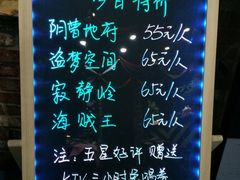 今日特价
阴曹地府 55元/人
盗梦空间 65元/人
寂静岭 65元/人
海贼王 65元/人
注：五星好评赠送
KTV三小时免唱券